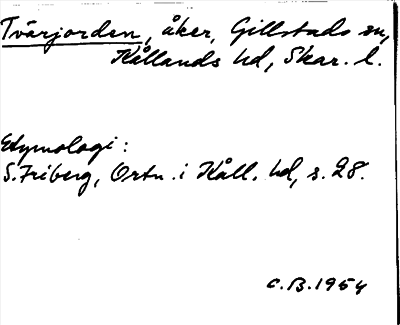 Tvärjorden, åker, Gillstads sn,
Kållands hd, Skar. l.
Etymologi:
S. Friberg, Ortn. i Kåll. hd, s. 28.
C.B. 1954